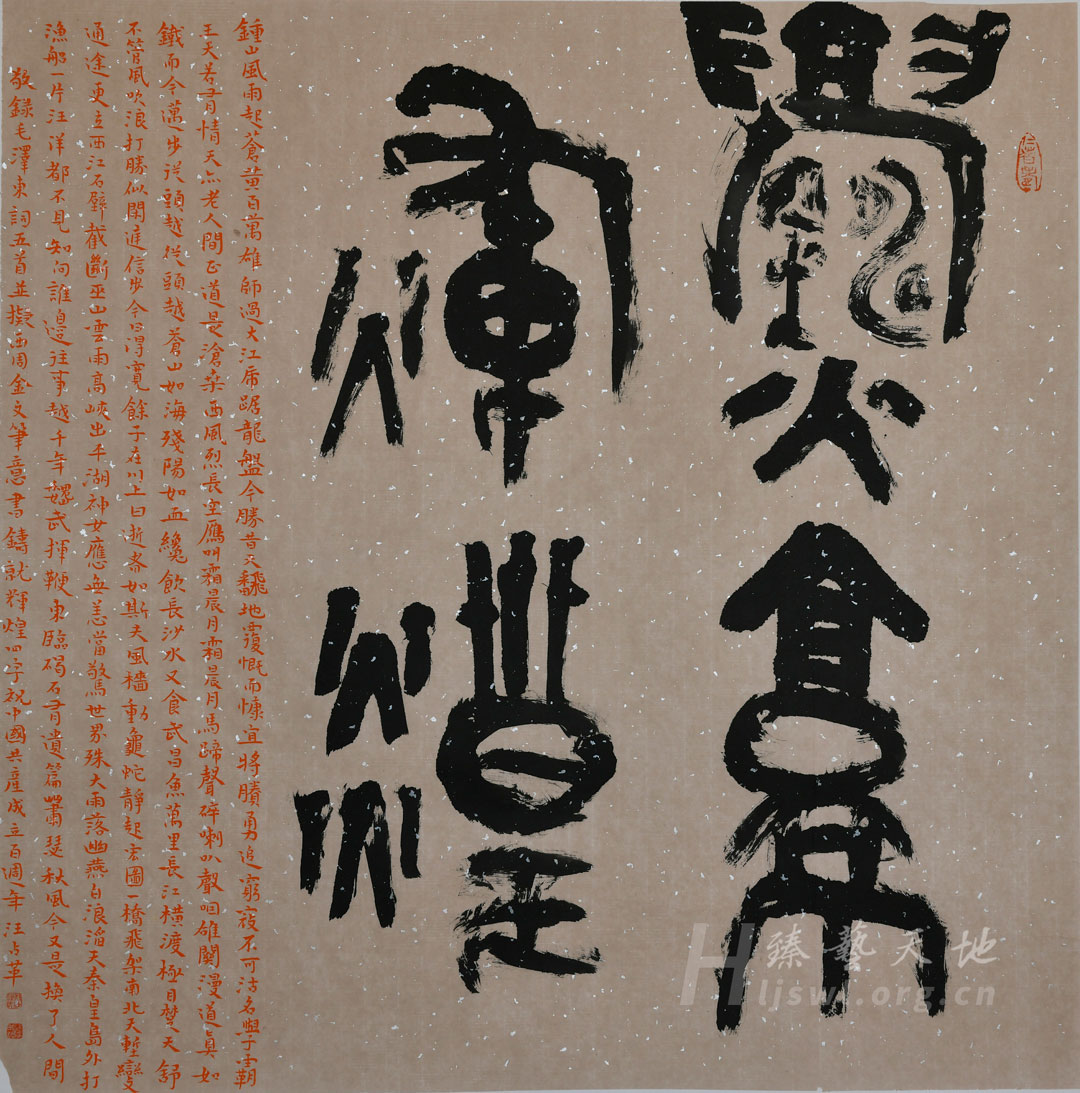 鑄就
輝煌
鍾山風雨起蒼黃百萬雄師過大江虎踞龍盤今勝昔天翻地覆慨而慷宜將賸勇追窮寇不可沽名學霸
王天若有情天亦老人間正道是滄桑西風烈長空雁叫霜晨月霜晨月馬蹄聲碎喇叭聲咽雄關漫道真如
鐵而今邁步從頭越從頭越蒼山如海殘陽如血纔飲長沙水又食武昌魚萬里長江橫渡極目楚天舒
不管風吹浪打勝似閑庭信步今日得寬餘子在川上曰逝者如斯夫風檣動龜蛇靜起宏圖一橋飛架南北天塹變
通途更立西江石壁截斷巫山雲雨高峽出平湖神女應無恙當驚世界殊大雨落幽燕白浪滔天秦皇島外打
漁船一片汪洋都不見知向誰邊往事越千年魏武揮鞭東臨碣石有遺篇蕭瑟秋風今又是換了人間
敬錄毛澤東詞五首並擬西周金文筆意書鑄就輝煌四字祝中國共產成立百週年 汪占革
臻藝天地
Hljswj.org.cn